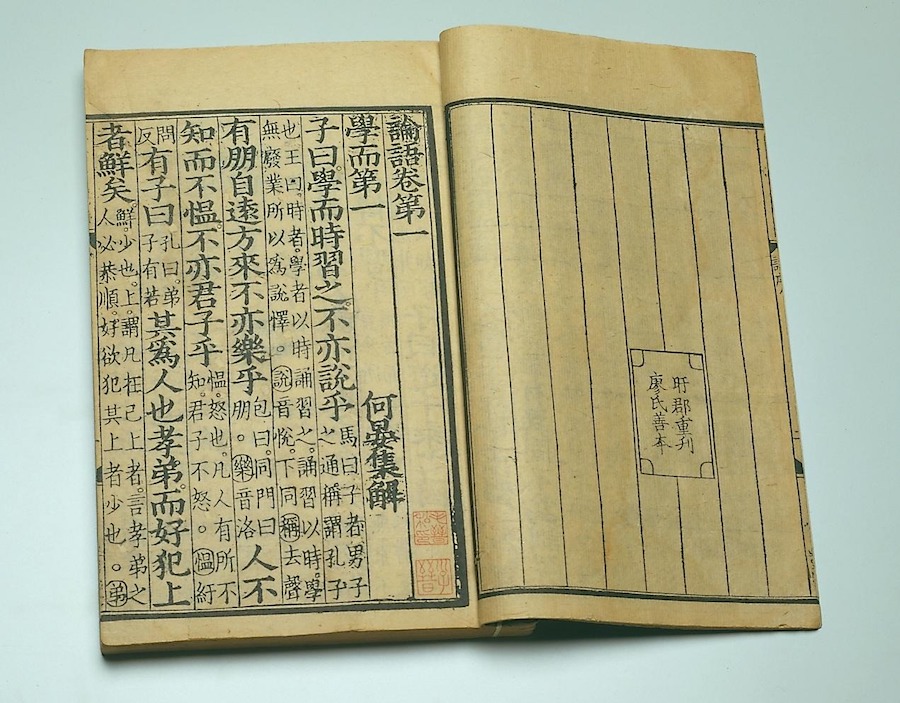 盱郡重刊
廖氏善本
論語卷第一
學而第一 何晏集解
子曰。學而時習之。不亦說乎 馬曰子者男子
之通稱謂孔子
也王曰。時者。學者以時誦習之。誦習以時學
無廢業所以為說懌。○說音悅。下同稱去聲
有朋自遠方來不亦樂乎 包曰。同門曰
朋。樂音洛
人不
知而不慍。不亦君子乎 慍。怒也。凡人有所不
知。君子不怒。○慍紆
問
反
有子曰 孔曰。弟
子有若
其爲人也孝弟。而好犯上
者鮮矣。鮮。少也。上。謂凡在己上者。言孝弟之
人必恭順。好欲犯其上者少也。○弟